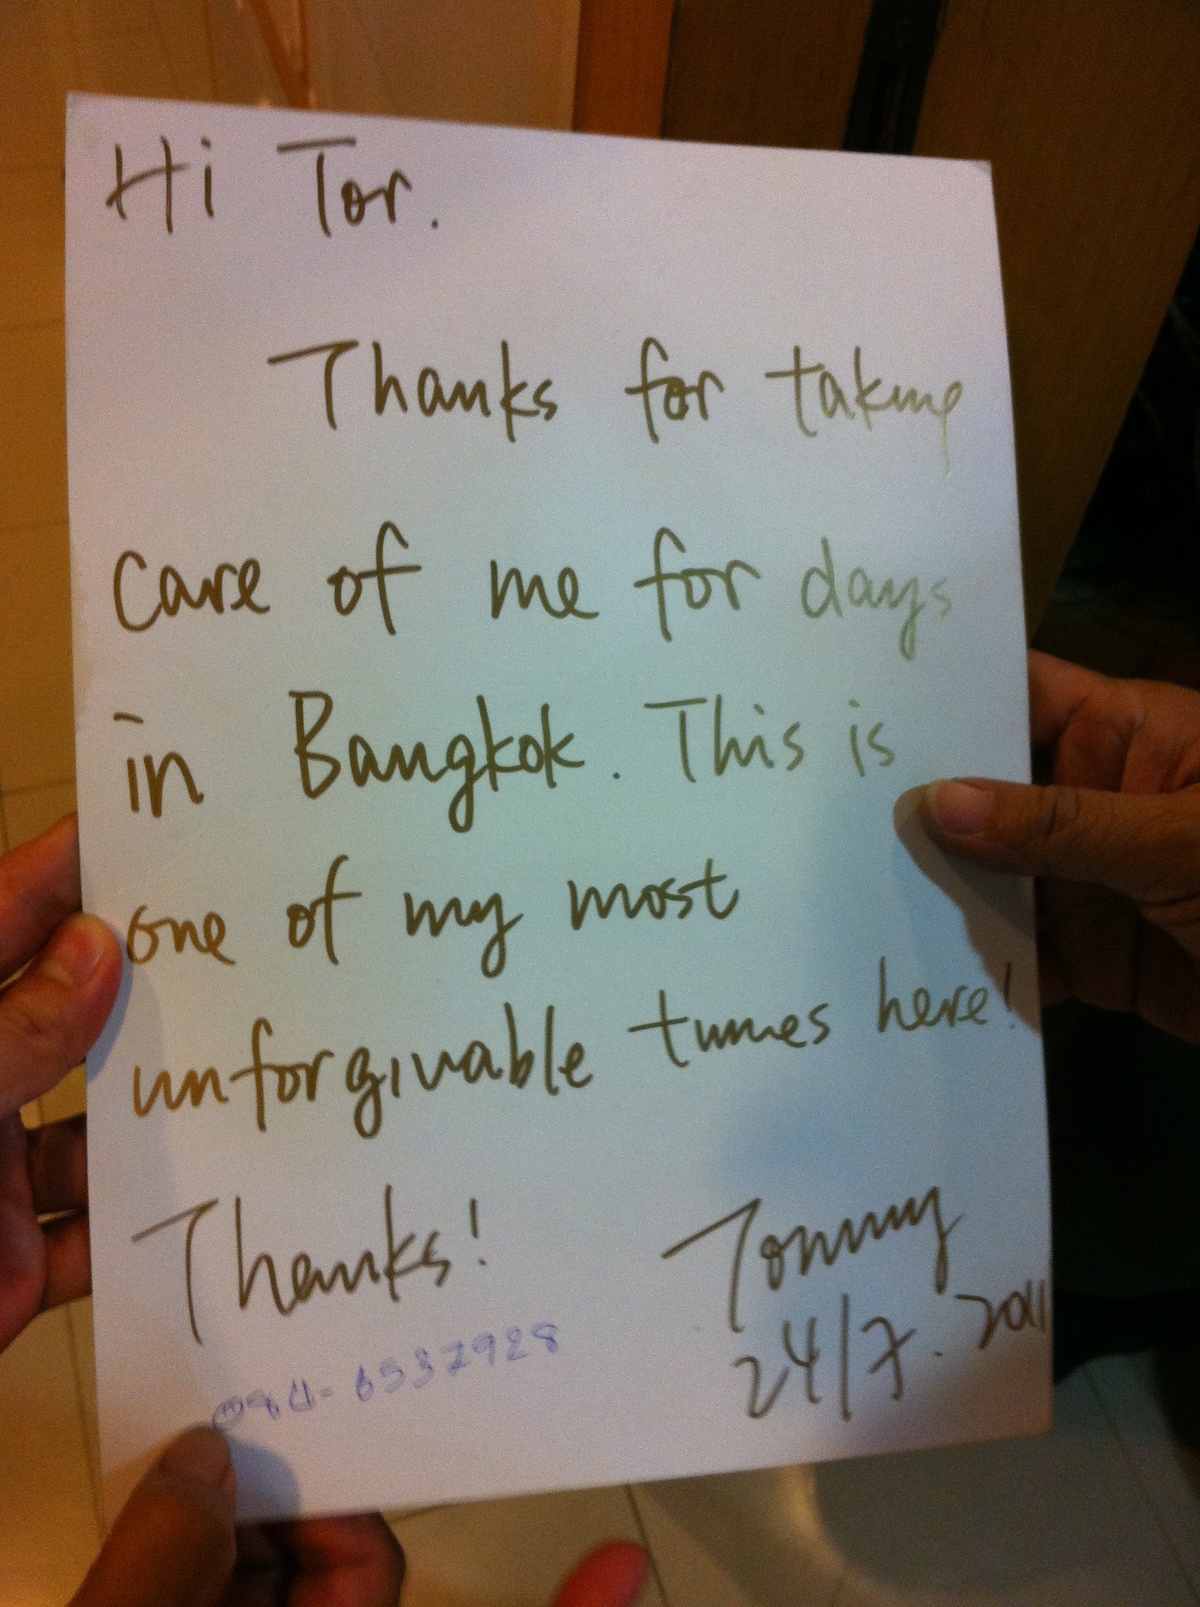 Hi Tor.
Thanks for taking
care of me for days
in Bangkok. This is
one of my most
unforgivable times here!
Thanks!
Tommy
24/7. 2011
084-6537928